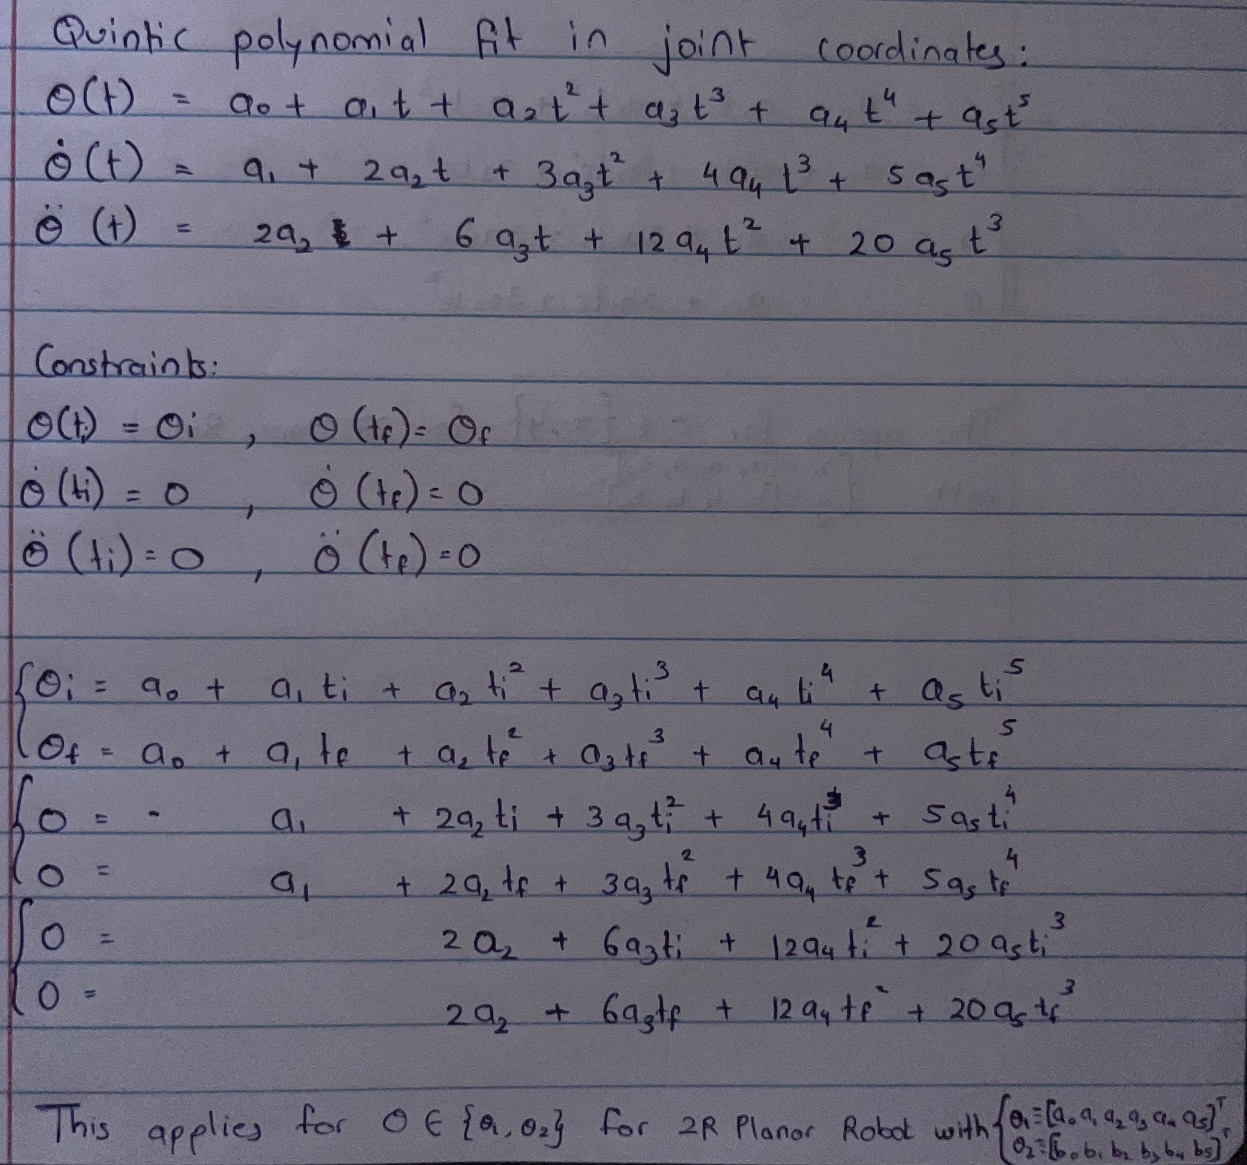 Quintic polynomial fit in joint coordinates:
θ(t) = a₀ + a₁t + a₂t² + a₃t³ + a₄t⁴ + a₅t⁵
θ̇(t) = a₁ + 2a₂t + 3a₃t² + 4a₄t³ + 5a₅t⁴
θ̈(t) = 2a₂ + 6a₃t + 12a₄t² + 20a₅t³
Constraints:
θ(tᵢ) = θᵢ , θ(t_f) = θ_f
θ̇(tᵢ) = 0 , θ̇(t_f) = 0
θ̈(tᵢ) = 0 , θ̈(t_f) = 0
θᵢ = a₀ + a₁tᵢ + a₂tᵢ² + a₃tᵢ³ + a₄tᵢ⁴ + a₅tᵢ⁵
θ_f = a₀ + a₁t_f + a₂t_f² + a₃t_f³ + a₄t_f⁴ + a₅t_f⁵
0 = a₁ + 2a₂tᵢ + 3a₃tᵢ² + 4a₄tᵢ³ + 5a₅tᵢ⁴
0 = a₁ + 2a₂t_f + 3a₃t_f² + 4a₄t_f³ + 5a₅t_f⁴
0 = 2a₂ + 6a₃tᵢ + 12a₄tᵢ² + 20a₅tᵢ³
0 = 2a₂ + 6a₃t_f + 12a₄t_f² + 20a₅t_f³
This applies for θ ∈ {θ₁, θ₂} for 2R Planar Robot with { θ₁ = [a₀ a₁ a₂ a₃ a₄ a₅]ᵀ
θ₂ = [b₀ b₁ b₂ b₃ b₄ b₅]ᵀ